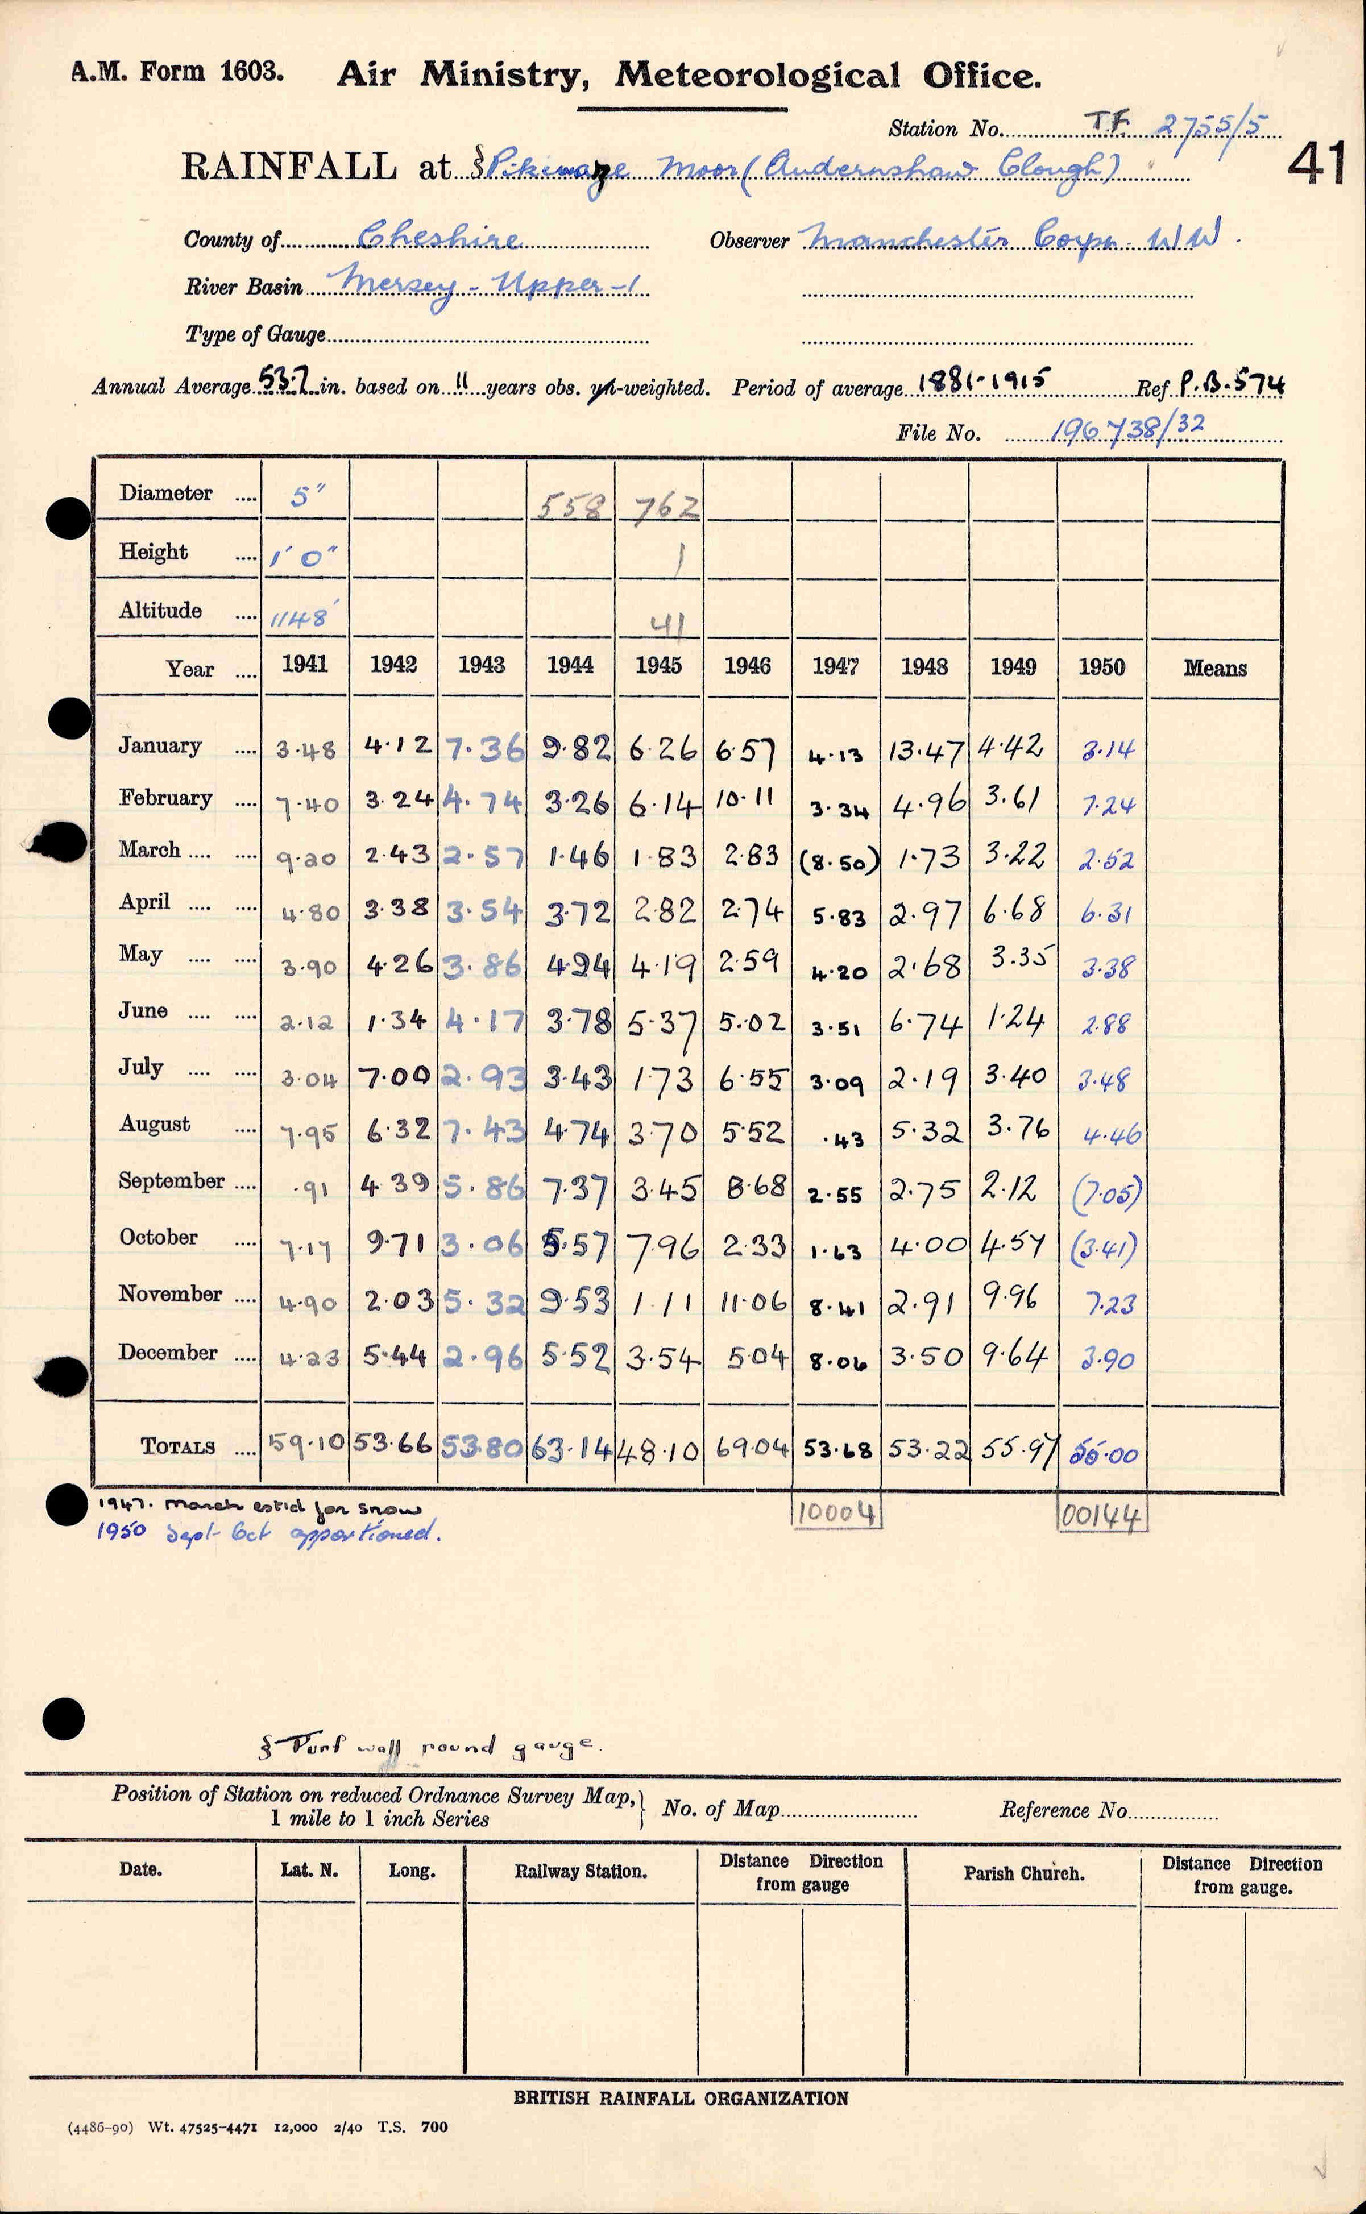 A.M. Form 1603. Air Ministry, Meteorological Office.
Station No. T.F. 2755/5
RAINFALL at § Pikenaze Moor (Audernshaw Clough) 41
County of Cheshire Observer Manchester Corpn. W.W.
River Basin Mersey - Upper - 1
Type of Gauge
Annual Average 53.7 in. based on 11 years obs. -weighted. Period of average 1881-1915 Ref P.B.574
File No. 196738/32
Diameter .... 5" 558 762
Height .... 1' 0" 1
Altitude .... 1148' 41
Year .... 1941 1942 1943 1944 1945 1946 1947 1948 1949 1950 Means
January .... 3.48 4.12 7.36 9.82 6.26 6.57 4.13 13.47 4.42 3.14
February .... 7.40 3.24 4.74 3.26 6.14 10.11 3.34 4.96 3.61 7.24
March .... .... 9.20 2.43 2.57 1.46 1.83 2.83 (8.50) 1.73 3.22 2.52
April .... .... 4.80 3.38 3.54 3.72 2.82 2.74 5.83 2.97 6.68 6.31
May .... .... 3.90 4.26 3.86 4.94 4.19 2.59 4.20 2.68 3.35 3.38
June .... .... 2.12 1.34 4.17 3.78 5.37 5.02 3.51 6.74 1.24 2.88
July .... .... 3.04 7.00 2.93 3.43 1.73 6.55 3.09 2.19 3.40 3.48
August .... 7.95 6.32 7.43 4.74 3.70 5.52 .43 5.32 3.76 4.46
September .... .91 4.39 5.86 7.37 3.45 8.68 2.55 2.75 2.12 (7.05)
October .... 7.17 9.71 3.06 5.57 7.96 2.33 1.63 4.00 4.57 (3.41)
November .... 4.90 2.03 5.32 9.53 1.11 11.06 8.41 2.91 9.96 7.23
December .... 4.23 5.44 2.96 5.52 3.54 5.04 8.06 3.50 9.64 3.90
TOTALS .... 59.10 53.66 53.80 63.14 48.10 69.04 53.68 53.22 55.97 55.00
1947. March estd for snow 10004 00144
1950 Sept Oct apportioned.
§ Turf wall round gauge.
Position of Station on reduced Ordnance Survey Map, } No. of Map Reference No.
1 mile to 1 inch Series
Date. Lat. N. Long. Railway Station. Distance Direction from gauge Parish Church. Distance Direction from gauge.
BRITISH RAINFALL ORGANIZATION
(4486-90) Wt. 47525-4471 12,000 2/40 T.S. 700